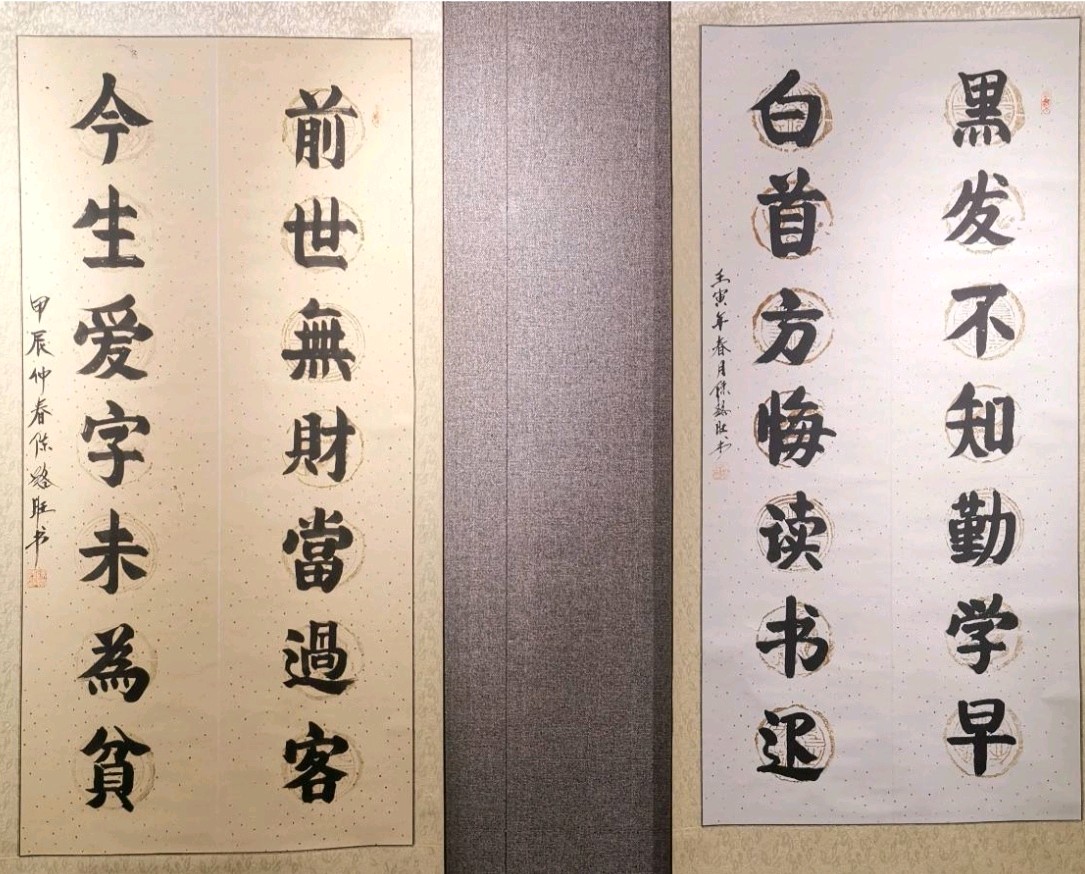 黑发不知勤学早
白首方悔读书迟
壬寅年春月陈懿旺书
前世無財當過客
今生爱字未為貧
甲辰仲春陈懿旺书